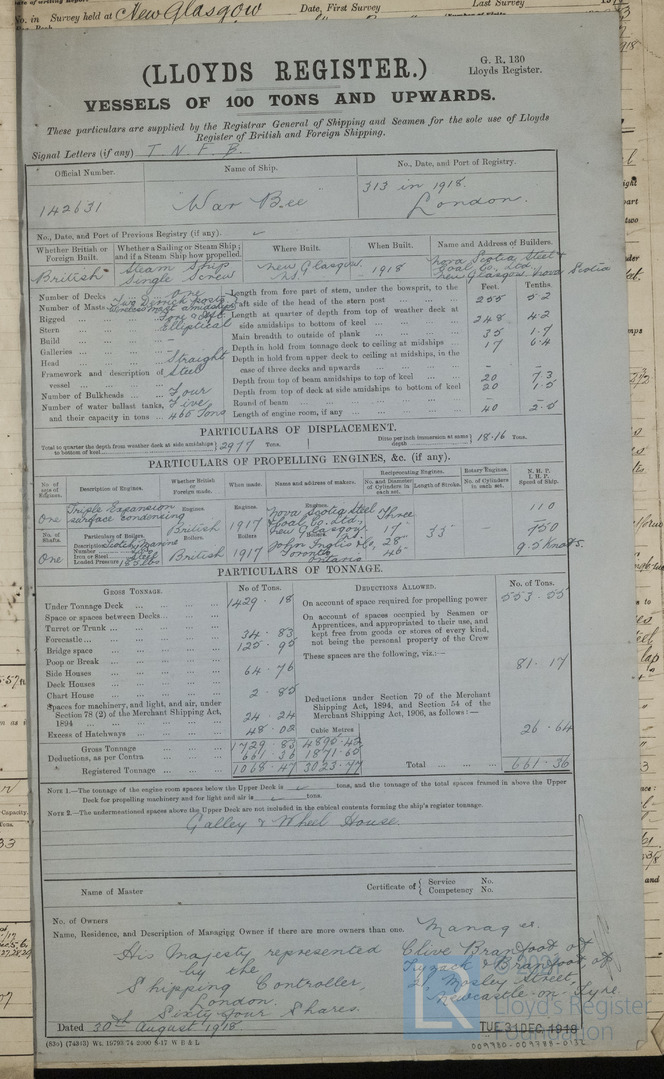 No. in Survey held at New Glasgow Date, First Survey Last Survey
G. R. 130
Lloyds Register.
(LLOYDS REGISTER.)
VESSELS OF 100 TONS AND UPWARDS.
These particulars are supplied by the Registrar General of Shipping and Seamen for the sole use of Lloyds
Register of British and Foreign Shipping.
Signal Letters (if any) T N F B.
Official Number. Name of Ship. No., Date, and Port of Registry.
142631 "War Bee" 313 in 1918. London.
No., Date, and Port of Previous Registry (if any).
Whether British or Foreign Built. Whether a Sailing or Steam Ship; and if a Steam Ship how propelled. Where Built. When Built. Name and Address of Builders.
British Steam Ship Single Screw New Glasgow N.S. 1918 Nova Scotia Steel & Coal Co. Ltd, New Glasgow, Nova Scotia
Number of Decks ... one Length from fore part of stem, under the bowsprit, to the aft side of the head of the stern post Feet. Tenths. 255 5.2
Number of Masts Two Derrick posts
Rigged ... Fore & Aft Length at quarter of depth from top of weather deck at side amidships to bottom of keel 248 4.2
Stern ... Elliptical
Build ... Main breadth to outside of plank 35 1.7
Galleries ... Depth in hold from tonnage deck to ceiling at midships 17 6.4
Head ... Straight Depth in hold from upper deck to ceiling at midships, in the case of three decks and upwards
Framework and description of vessel ... Steel Depth from top of beam amidships to top of keel 20 7.3
Number of Bulkheads ... Four Depth from top of deck at side amidships to bottom of keel 20 1.5
Number of water ballast tanks, and their capacity in tons ... Five 465 Tons Round of beam
Length of engine room, if any 40 2.5
PARTICULARS OF DISPLACEMENT.
Total to quarter the depth from weather deck at side amidships to bottom of keel 2977 Tons. Ditto per inch immersion at same depth 18.16 Tons.
PARTICULARS OF PROPELLING ENGINES, &c. (if any).
No. of sets of Engines. Description of Engines. Whether British or Foreign made. When made. Name and address of makers. Reciprocating Engines. No. and Diameter of Cylinders in each set. Length of Stroke. Rotary Engines. No. of Cylinders in each set. N.H.P. I.H.P. Speed of Ship.
One Triple Expansion surface condensing Engines. British Engines. 1917 Engines. Nova Scotia Steel & Coal Co. Ltd, New Glasgow, N.S. Three 17" 28" 46" 33" 110 750 9.5 Knots.
No. of Shafts. Particulars of Boilers. Boilers. Boilers. Boilers.
One Description Number Iron or Steel Steel Loaded Pressure 185 lbs British 1917 John Inglis & Co, Toronto Ontario
PARTICULARS OF TONNAGE.
GROSS TONNAGE. No of Tons. DEDUCTIONS ALLOWED. No. of Tons.
Under Tonnage Deck ... 1429.18 On account of space required for propelling power 553.55
Space or spaces between Decks... On account of spaces occupied by Seamen or Apprentices, and appropriated to their use, and kept free from goods or stores of every kind, not being the personal property of the Crew
Turret or Trunk ...
Forecastle... 34.83
Bridge space ... 125.95 These spaces are the following, viz:— 81.17
Poop or Break ...
Side Houses ... 64.76
Deck Houses ...
Chart House ... 2.85
Spaces for machinery, and light, and air, under Section 78 (2) of the Merchant Shipping Act, 1894 ... 24.24 Deductions under Section 79 of the Merchant Shipping Act, 1894, and Section 54 of the Merchant Shipping Act, 1906, as follows:— 26.64
Excess of Hatchways ... 48.02 Cubic Metres
Gross Tonnage 1729.83 4890.42
Deductions, as per Contra 661.36 1871.60
Registered Tonnage ... 1068.47 3023.77 Total ... 661.36
NOTE 1.—The tonnage of the engine room spaces below the Upper Deck is tons, and the tonnage of the total spaces framed in above the Upper
Deck for propelling machinery and for light and air is tons.
NOTE 2.—The undermentioned spaces above the Upper Deck are not included in the cubical contents forming the ship's register tonnage.
Galley & Wheel House.
Name of Master Certificate of Service No. Competency No.
No. of Owners
Name, Residence, and Description of Managing Owner if there are more owners than one. Manager.
His Majesty represented Clive Brandfoot of
by the Tyzack & Branfoot of
Shipping Controller, 21, Mosley Street,
London. Newcastle-on-Tyne.
Sixty four Shares.
Dated 30th August 1918
TUE 31 DEC 1918
(830) (74313) Wt. 19793/74 2000 8-17 W B & L
009780-009788-0132
Lloyd's Register
Foundation